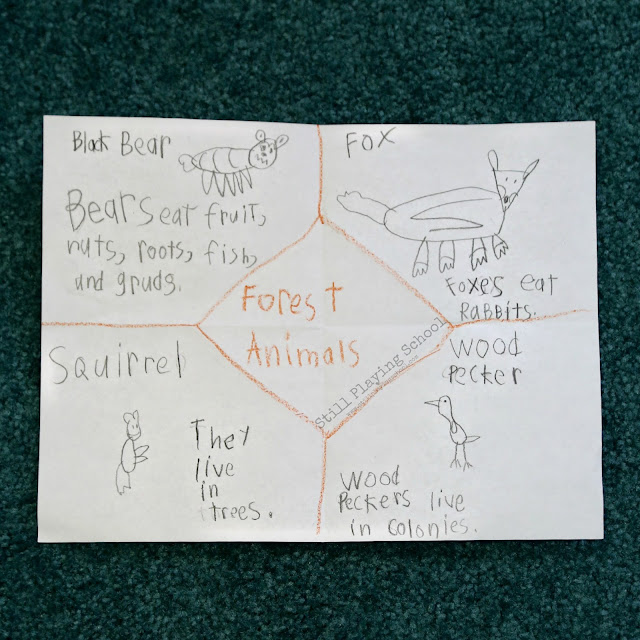 Black Bear
Bears eat fruit,
nuts, roots, fish,
and gruds.
Fox
Foxes eat
Rabbits.
Forest
Animals
Still Playing School
Squirrel
They
live
in
trees.
Wood
Pecker
Wood
Peckers live
in colonies.